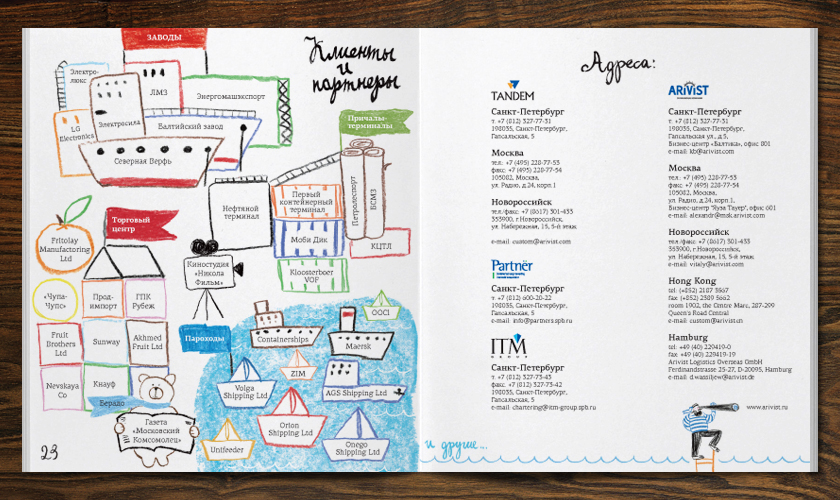 Клиенты
и
партнеры
ЗАВОДЫ
Электро-
люкс
ЛМЗ
Энергомашэкспорт
LG
Electronics
Электросила
Балтийский завод
Северная Верфь
Причалы-
терминалы
Петролеспорт
БСМЗ
Нефтяной
терминал
Первый
контейнерный
терминал
Моби Дик
КЦТЛ
Kloosterboer
VOF
Торговый
центр
Fritolay
Manufactoring
Ltd
Киностудия
«Никола
Фильм»
«Чупа-
Чупс»
Прод-
импорт
ГПК
Рубеж
Fruit
Brothers
Ltd
Sunway
Akhmed
Fruit Ltd
Nevskaya
Co
Кнауф
Берадо
Газета
«Московский
Комсомолец»
Пароходы
OOCL
Containerships
Maersk
ZIM
Volga
Shipping Ltd
AGS Shipping Ltd
Orion
Shipping Ltd
Unifeeder
Onego
Shipping Ltd
23
и другие...
Адреса:
TANDEM
Санкт-Петербург
т. +7 (812) 327-77-31
198035, Санкт-Петербург,
Гапсальская, 5
Москва
тел.: +7 (495) 228-77-53
факс: +7 (495) 228-77-54
105082, Москва,
ул. Радио, д.24, корп.1
Новороссийск
тел./факс: +7 (8617) 301-433
353900, г.Новороссийск,
ул. Набережная, 15, 5-й этаж
e-mail: custom@arivist.com
Partnër
Санкт-Петербург
т. +7 (812) 600-20-22
198035, Санкт-Петербург,
Гапсальская, 5
e-mail: info@partners.spb.ru
ITM
GROUP
Санкт-Петербург
т. +7 (812) 327-73-43
факс +7 (812) 327-73-42
198035, Санкт-Петербург,
Гапсальская, 5
e-mail: chartering@itm-group.spb.ru
ARiViST
Санкт-Петербург
т. +7 (812) 327-77-31
198035, Санкт-Петербург,
Гапсальская ул., д.5,
Бизнес-центр «Балтика», офис 001
e-mail: kb@arivist.com
Москва
тел.: +7 (495) 228-77-53
факс: +7 (495) 228-77-54
105082, Москва,
ул. Радио, д.24, корп.1,
Бизнес-центр "Яуза Тауер", офис 001
e-mail: alexandr@msk.arivist.com
Новороссийск
тел./факс: +7 (8617) 301-433
353900, г.Новороссийск,
ул. Набережная, 15, 5-й этаж
e-mail: vitaly@arivist.com
Hong Kong
tel: (+852) 2187 5667
fax (+852) 2509 5662
room 1902, the Centre Mars, 287-299
Queen's Road Central
e-mail: custom@arivist.cn
Hamburg
tel: +49 (40) 229419-0
fax: +49 (40) 229419-19
Arivist Logistics Overseas GmbH
Ferdinandstrasse 25-27, D-20095, Hamburg
e-mail: d.wassiljew@arivist.de
www.arivist.ru